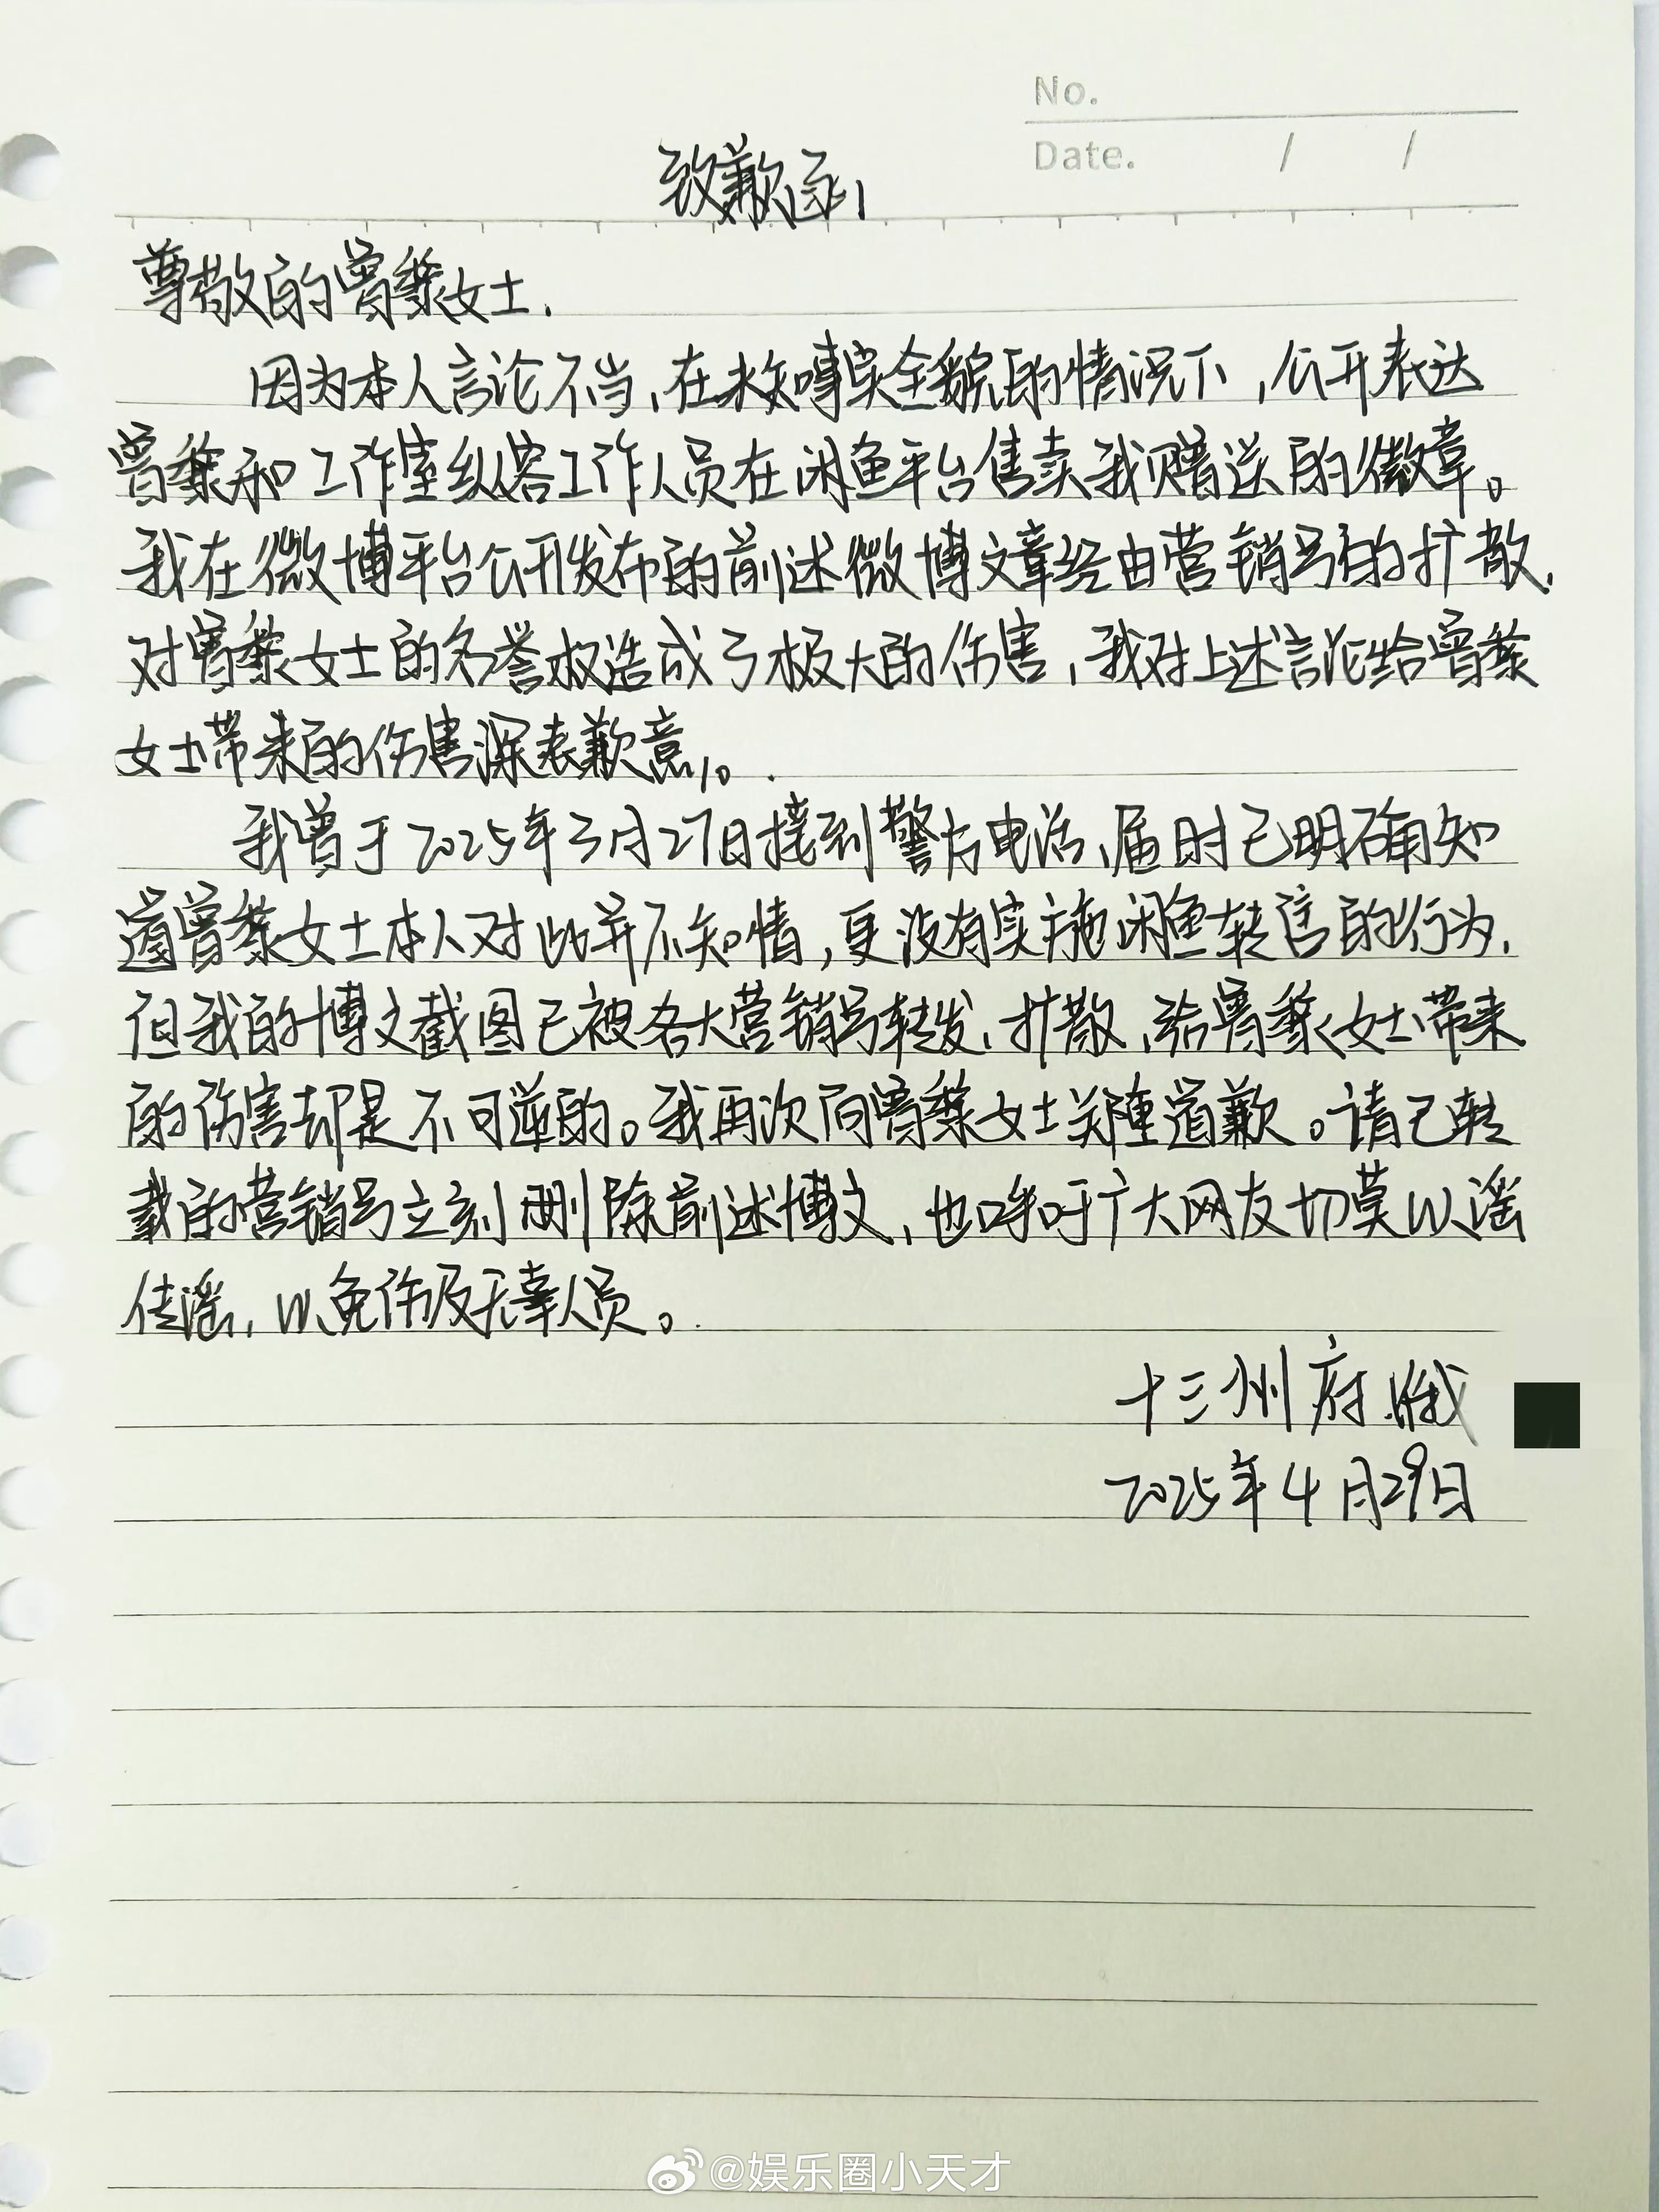 No.
Date. / /
致歉函
尊敬的曾黎女士,
因为本人言论不当,在未知事实全貌的情况下,公开表达
曾黎和工作室纵容工作人员在闲鱼平台售卖我赠送的徽章。
我在微博平台公开发布的前述微博文章经由营销号的扩散,
对曾黎女士的名誉权造成了极大的伤害,我对上述言论给曾黎
女士带来的伤害深表歉意。
我曾于2025年3月27日接到警方电话,届时已明确知
道曾黎女士本人对此并不知情,更没有实施闲鱼转售的行为,
但我的博文截图已被各大营销号转发、扩散,给曾黎女士带来
的伤害却是不可逆的。我再次向曾黎女士郑重道歉。请已转
载的营销号立刻删除前述博文,也呼吁广大网友切莫以谣
传谣,以免伤及无辜人员。
十三州府
2025年4月29日
@娱乐圈小天才